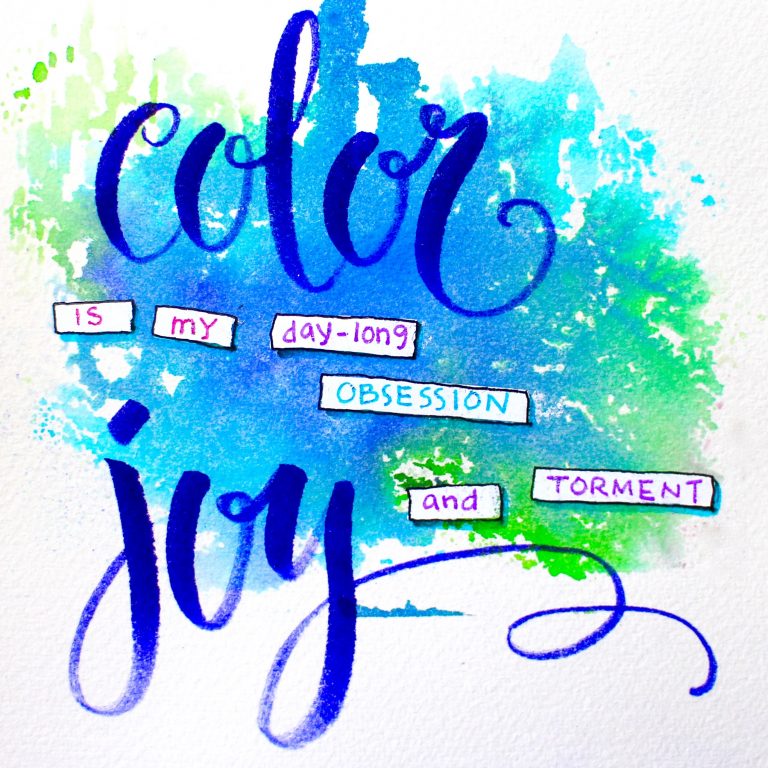 color
is my day-long
OBSESSION
joy
and TORMENT